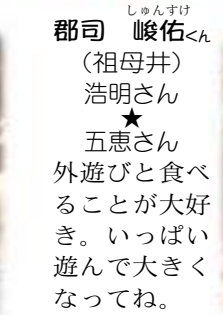 しゅんすけ
郡司　峻佑くん
（祖母井）
浩明さん
★
五恵さん
外遊びと食べ
ることが大好
き。いっぱい
遊んで大きく
なってね。